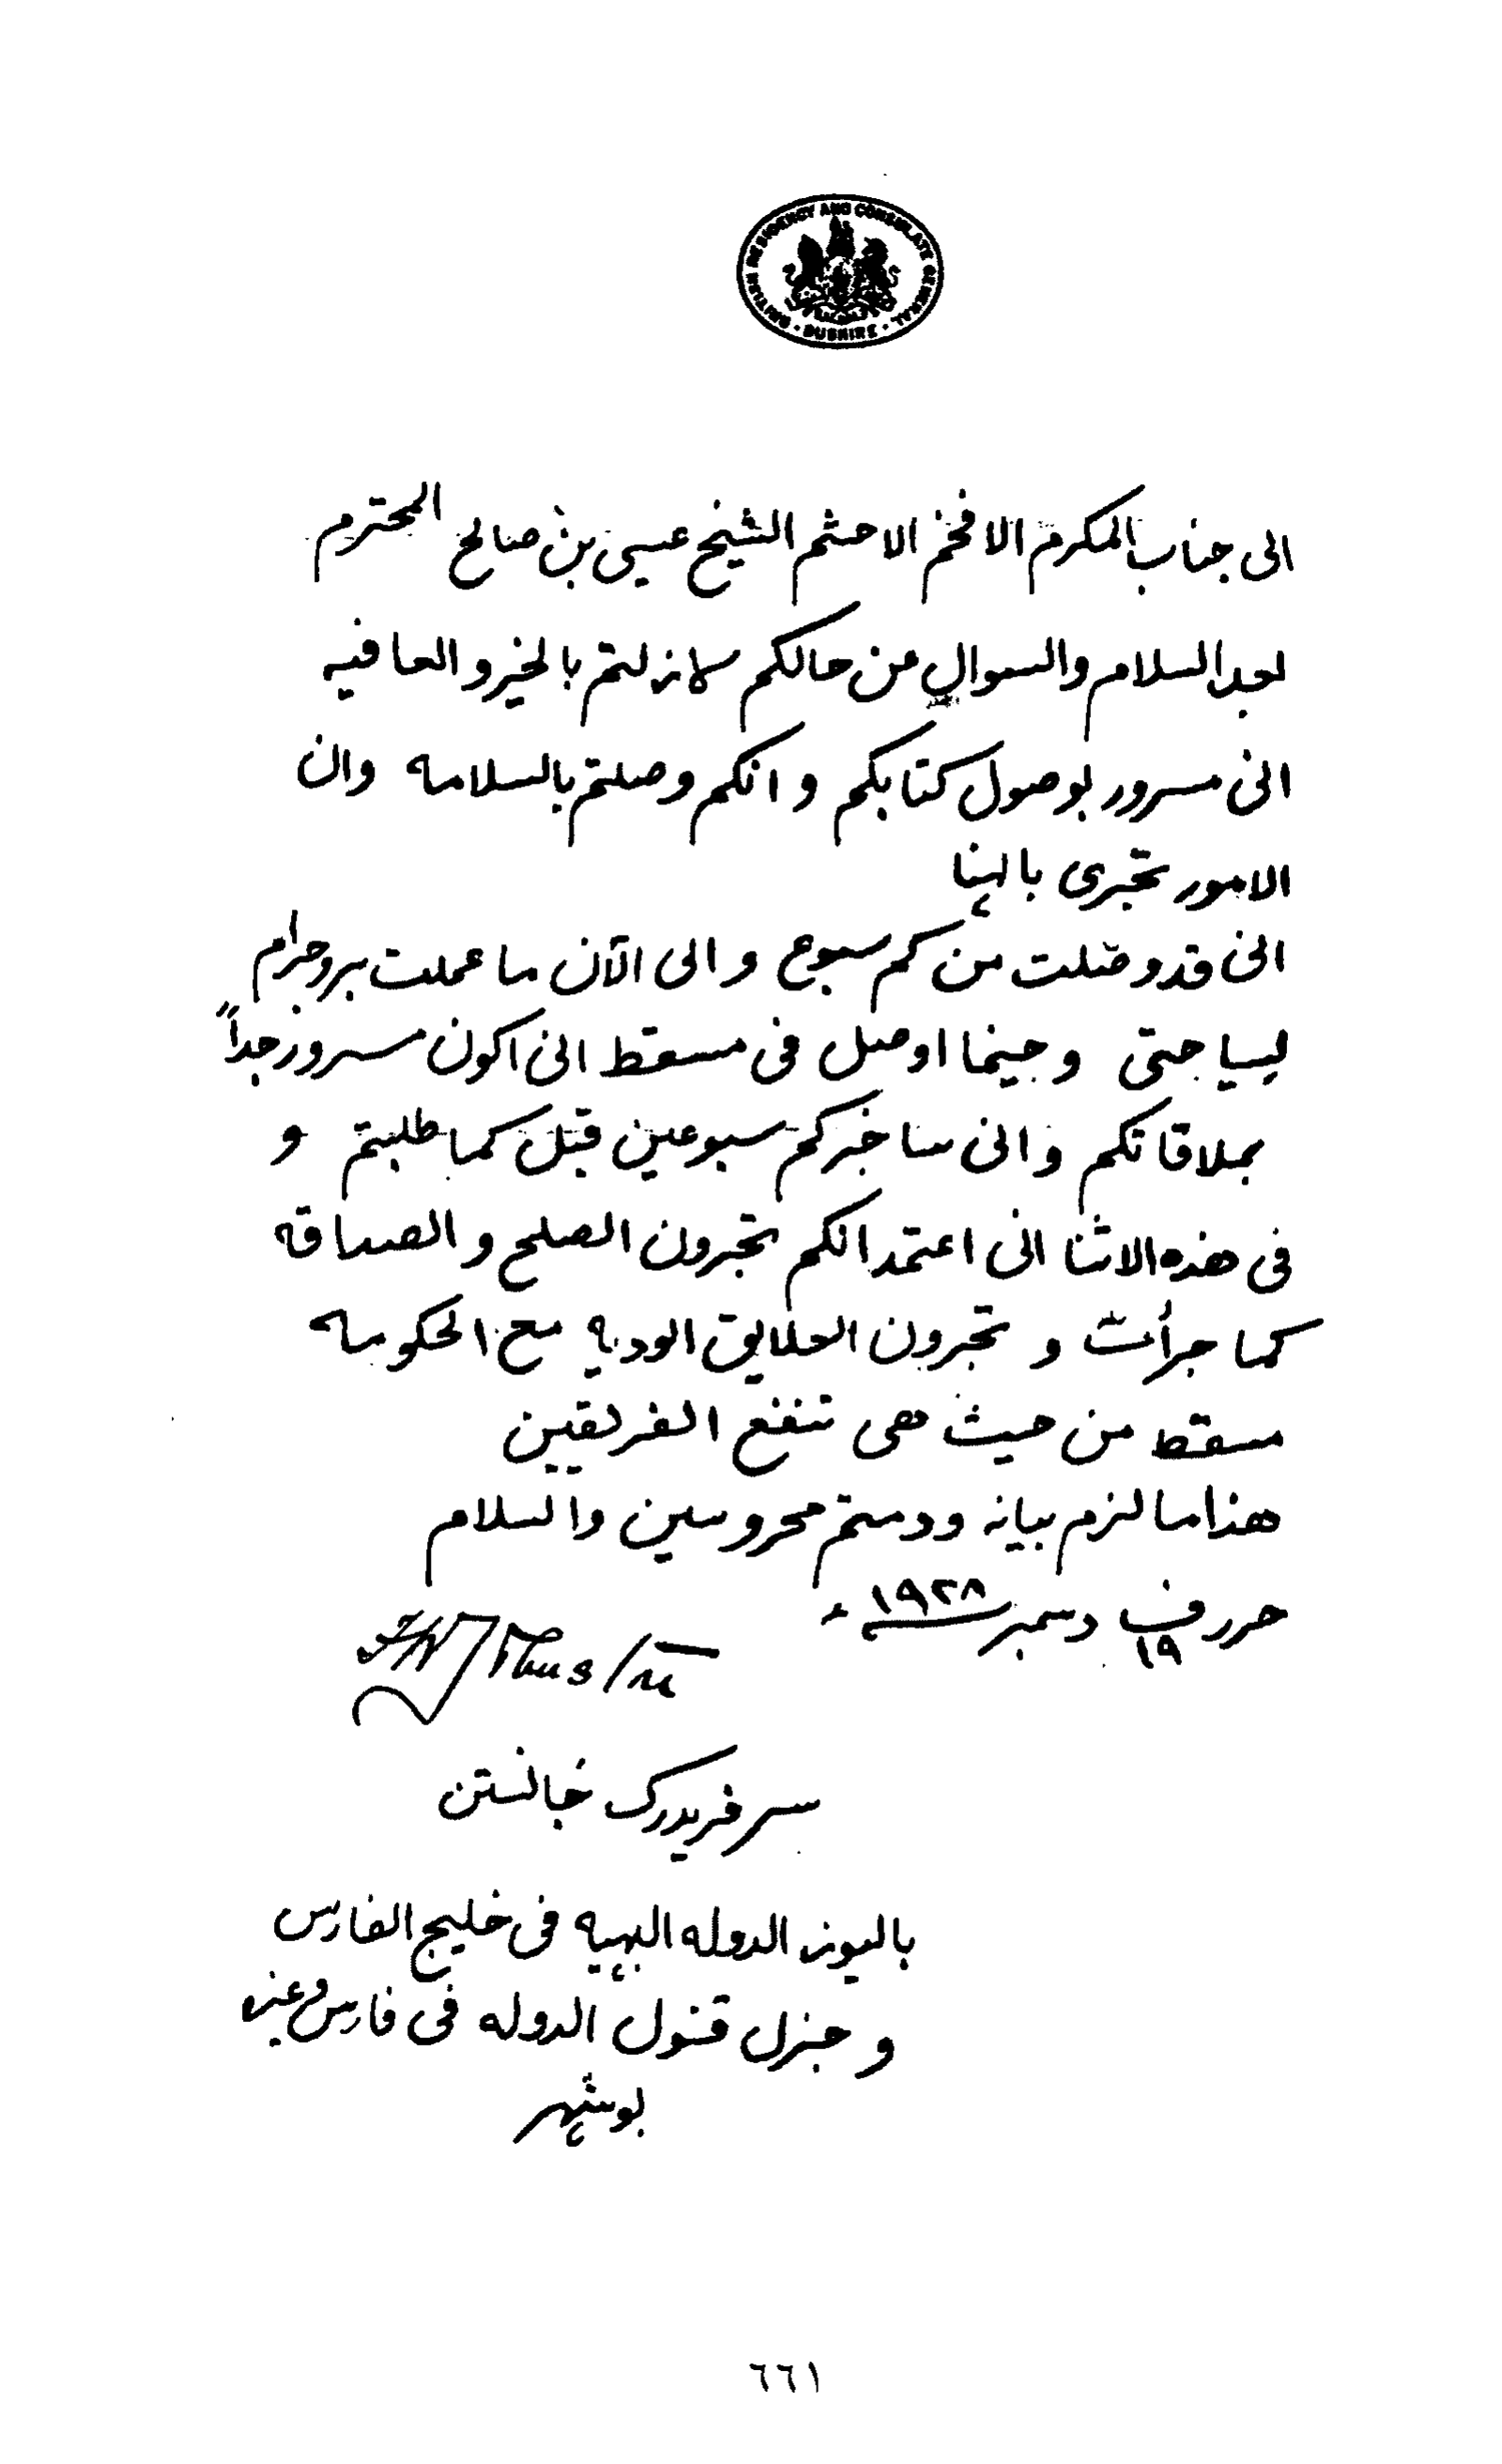 BRITISH RESIDENCY AND CONSULATE GENERAL · BUSHIRE ·
الى جناب المكرم الافخم الاحشم الشيخ عيسى بن صالح المحترم
بعد السلام والسوال عن حالكم لازلتم بالخير والعافيه
انى مسرور بوصول كتابكم وانكم وصلتم بالسلامه وان
الامور تجرى بالهنا
انى قد وصلت من كم سبوع والى الآن ما عملت بروجرام
لسياحتى وحينما اوصل فى مسقط انى اكون مسرور جداً
بملاقاتكم وانى ساخبركم سبوعين قبل كما طلبتم و
فى هذه الاثنا انى اعتمد انكم تجرون الصلح والصداقه
كما جرأت و تجرون العلايق الوديه مع الحكومه
مسقط من حيث هى تنفع الفريقين
هذا ما لزم بيانه ودمتم محروسين والسلام
حرر فى ١٩ دسمبر ١٩٢٨ء
سر فريدرك جانستن
باليوز الدوله البهيه فى خليج الفارس
وجنرل قنول الدوله فى فارس وغيره
بوشهر
٦٦١